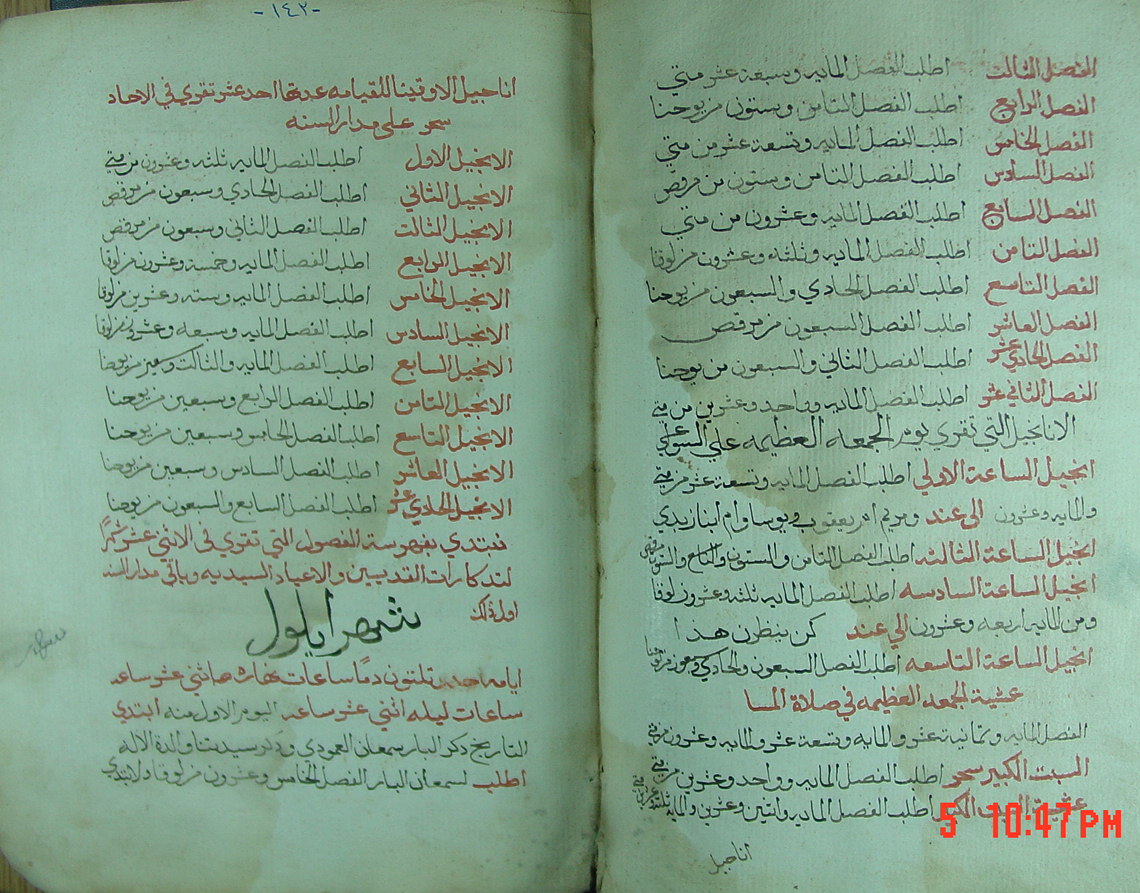 الفصل الثالث اطلب الفصل المايه وسبعة عشر متي
الفصل الرابع اطلب الفصل الثامن وستون من يوحنا
الفصل الخامس اطلب الفصل المايه وتسعة عشر من متي
الفصل السادس اطلب الفصل الثامن وستون من مرقص
الفصل السابع اطلب الفصل المايه وعشرون من متي
الفصل الثامن اطلب الفصل المايه وثلثه وعشرون من لوقا
الفصل التاسع اطلب الفصل الحادي والسبعون من يوحنا
الفصل العاشر اطلب الفصل السبعون من مرقص
الفصل الحادي عشر اطلب الفصل الثاني والسبعون من يوحنا
الفصل الثاني عشر اطلب الفصل المايه وواحد وعشرين من متي
الاناجيل التي تقري يوم الجمعه العظيمه علي السواعي
انجيل الساعة الاولي اطلب الفصل المايه وتسعة عشر من متي
والمايه وعشرون الي عند ومريم ام يعقوب ويوسا وام ابنا زبدي
انجيل الساعة الثالثه اطلب الفصل الثامن والستون والتاسع والستون مرقص
انجيل الساعة السادسه اطلب الفصل المايه ثلثه وعشرون لوقا
ومن المايه اربعه وعشرون الي عند كن ينظرن هذا
انجيل الساعة التاسعه اطلب الفصل السبعون والحادي وسبعون من يوحنا
عشية الجمعه العظيمه في صلاة المسا
الفصل المايه وثمانية عشر والمايه وتسعة عشر والمايه وعشرون من متي
السبت الكبير سحر اطلب الفصل المايه وواحد وعشرين من متي
عشية السبت الكبير اطلب الفصل المايه واثنين وعشرين والمايه ثلثه وعشرين
اناجيل
5 10:47 PM
-١٤٢-
اناجيل الاوثينا للقيامه عدتها احد عشر تقري في الاحاد
سحر علي مدار السنه
الانجيل الاول اطلب الفصل المايه ثلثه وعشرون من متي
الانجيل الثاني اطلب الفصل الحادي وسبعون من مرقص
الانجيل الثالث اطلب الفصل الثاني وسبعون من مرقص
الانجيل الرابع اطلب الفصل المايه وخمسة وعشرون من لوقا
الانجيل الخامس اطلب الفصل المايه وسته وعشرين من لوقا
الانجيل السادس اطلب الفصل المايه وسبعه وعشرين من لوقا
الانجيل السابع اطلب الفصل والثالث وسبعين من يوحنا
الانجيل الثامن اطلب الفصل الرابع وسبعين من يوحنا
الانجيل التاسع اطلب الفصل الخامس وسبعين من يوحنا
الانجيل العاشر اطلب الفصل السادس وسبعين من يوحنا
الانجيل الحادي عشر اطلب الفصل السابع والسبعون من يوحنا
نبتدي بفهرسة الفصول التي تقري في الاثني عشر شهرًا
لتدكارات القديسين والاعياد السيديه وباقي مدار السنه
اول ذلك شهر ايلول
ايامه ثلثون يومًا ساعات نهاره اثني عشر ساعه
ساعات ليله اثني عشر ساعه اليوم الاول منه ابتدي
التاريخ ذكر البار سمعان العمودي وذكر سيدتنا والدة الاله
اطلب لسمعان البار الفصل الخامس وعشرون من لوقا